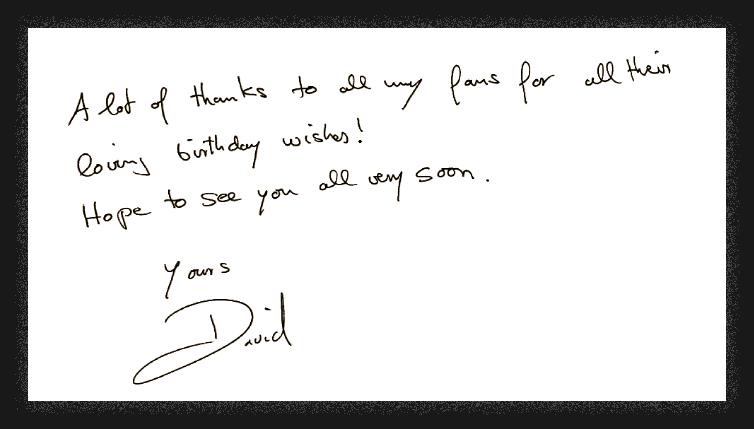 A lot of thanks to all my fans for all their
loving birthday wishes!
Hope to see you all very soon.
Yours
David